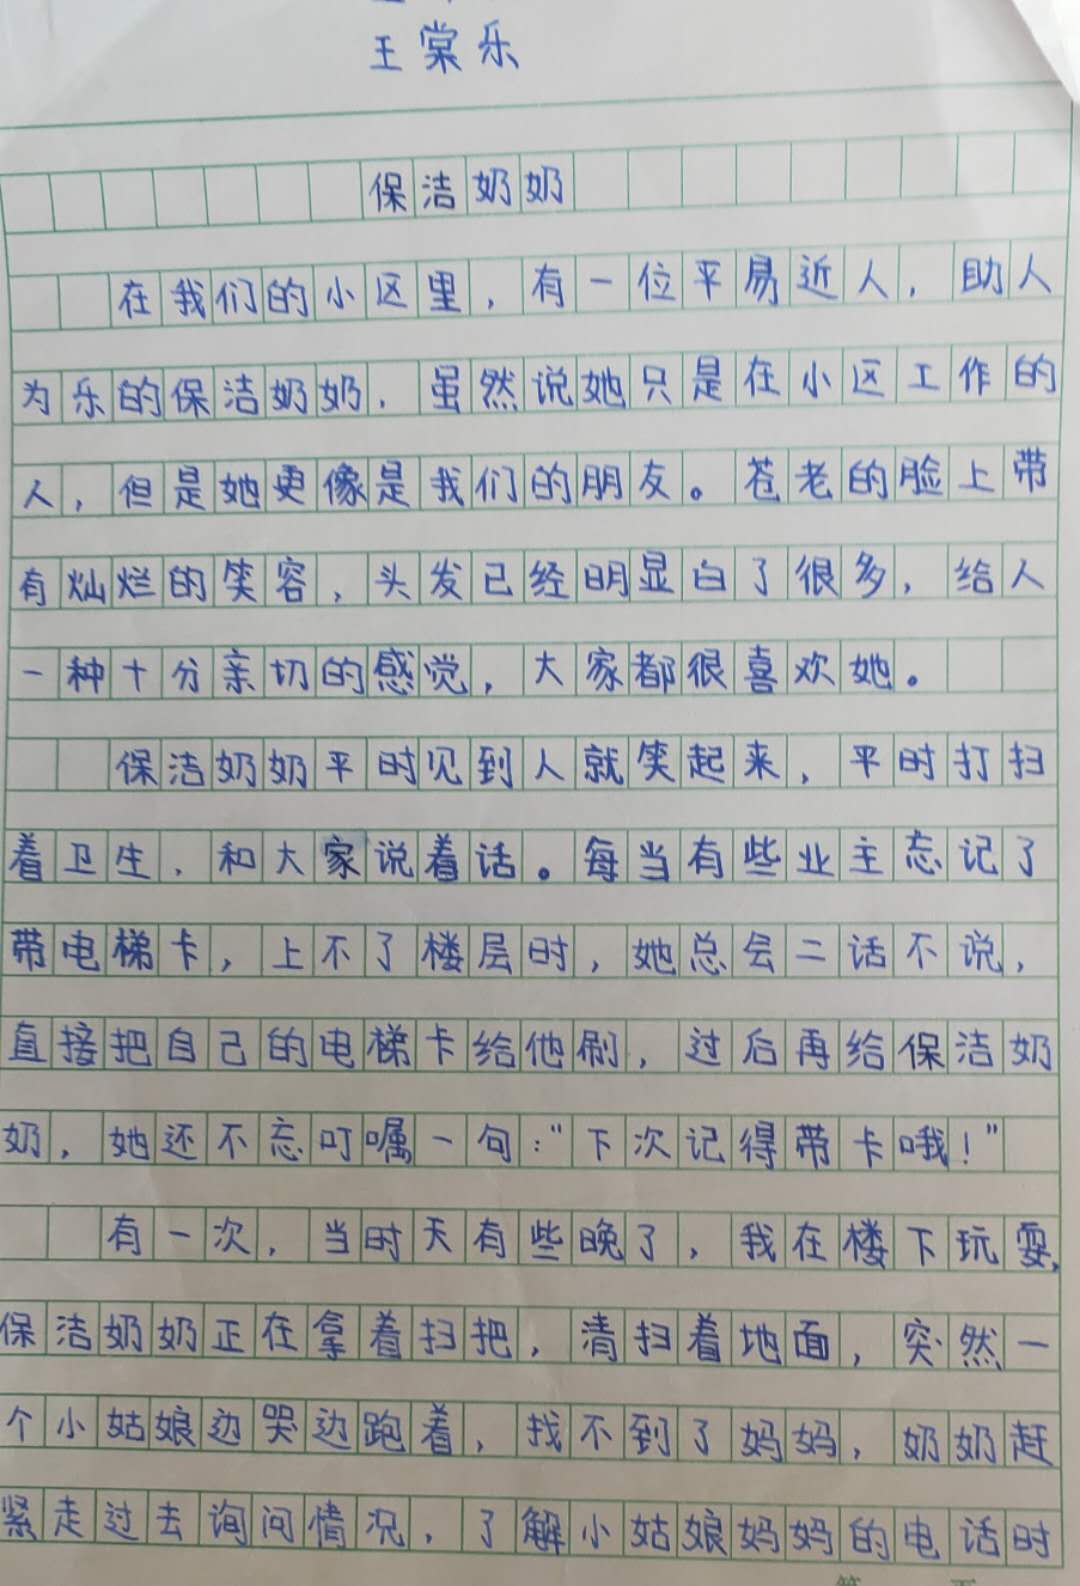 王棠乐
保洁奶奶
在我们的小区里，有一位平易近人，助人
为乐的保洁奶奶．虽然说她只是在小区工作的
人，但是她更像是我们的朋友。苍老的脸上带
有灿烂的笑容，头发已经明显白了很多，给人
一种十分亲切的感觉，大家都很喜欢她。
保洁奶奶平时见到人就笑起来，平时打扫
着卫生，和大家说着话。每当有些业主忘记了
带电梯卡，上不了楼层时，她总会二话不说，
直接把自己的电梯卡给他刷，过后再给保洁奶
奶，她还不忘叮嘱一句：“下次记得带卡哦！”
有一次，当时天有些晚了，我在楼下玩耍，
保洁奶奶正在拿着扫把，清扫着地面，突然一
个小姑娘边哭边跑着，找不到了妈妈，奶奶赶
紧走过去询问情况，了解小姑娘妈妈的电话时